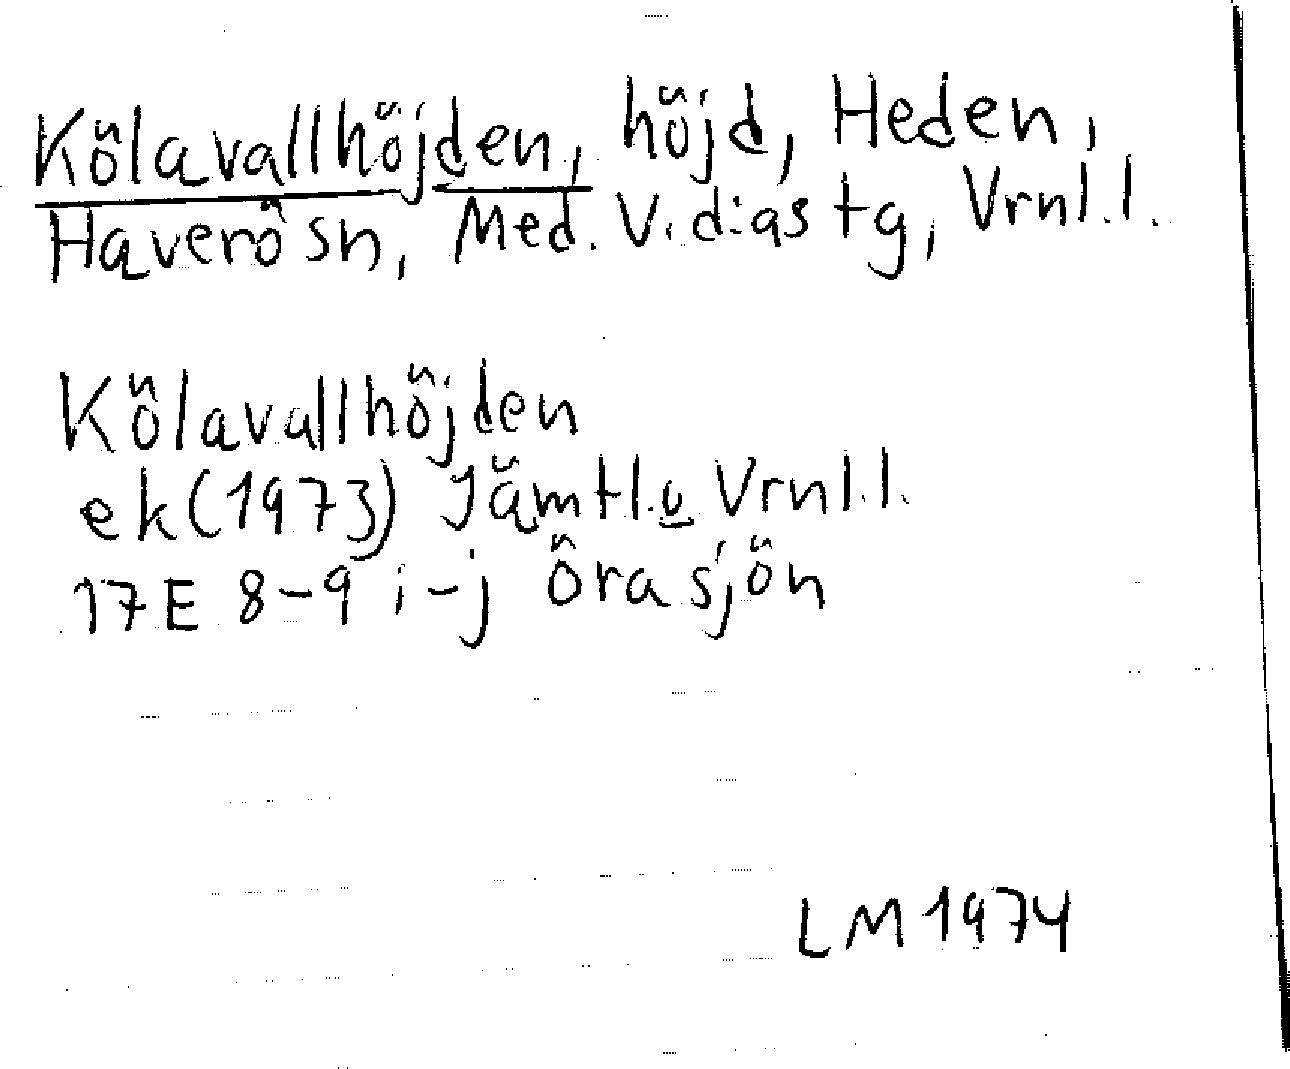 Kölavallhöjden, höjd, Heden,
Haverö sn, Med. V. d:as tg, Vrnl.l.
Kölavallhöjden
ek (1973) Jämtl. o Vrnl.l.
17E 8-9 i-j Örasjön
LM 1974